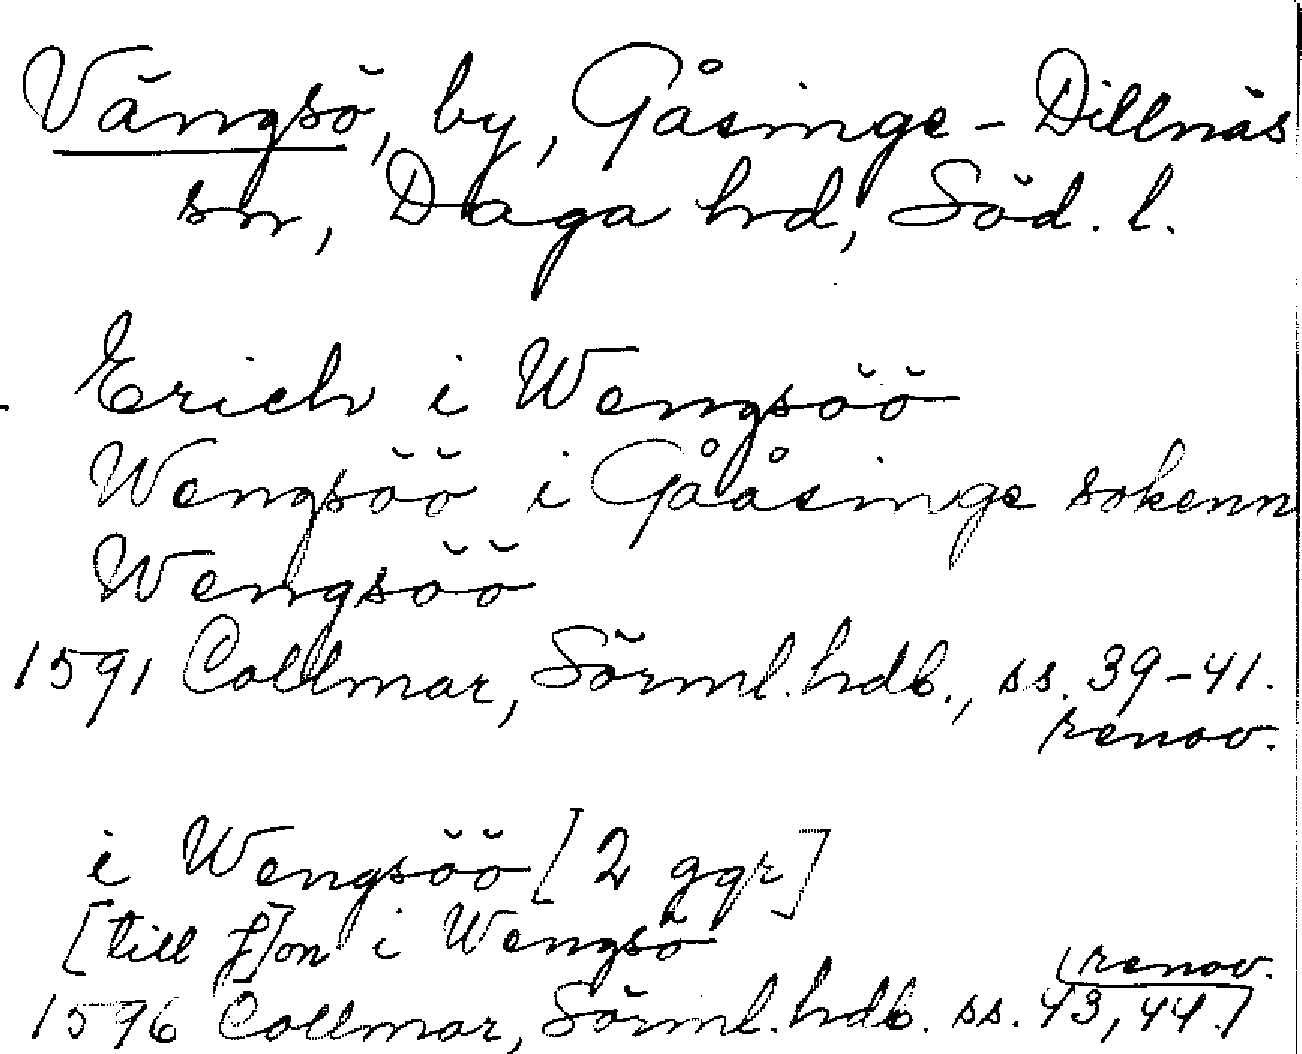 Vängsö, by, Gåsinge-Dillnäs
sn, Daga hd, Söd. l.
Erich i Wengsöö
Wengsöö i Gååsinge sokenn
Wengsöö
1591 Collmar, Sörml. hdb., ss. 39-41.
renov.
i Wengsöö [2 ggr]
[till f]on i Wengsö
renov.
1596 Collmar, Sörml. hdb. ss. 43, 44.